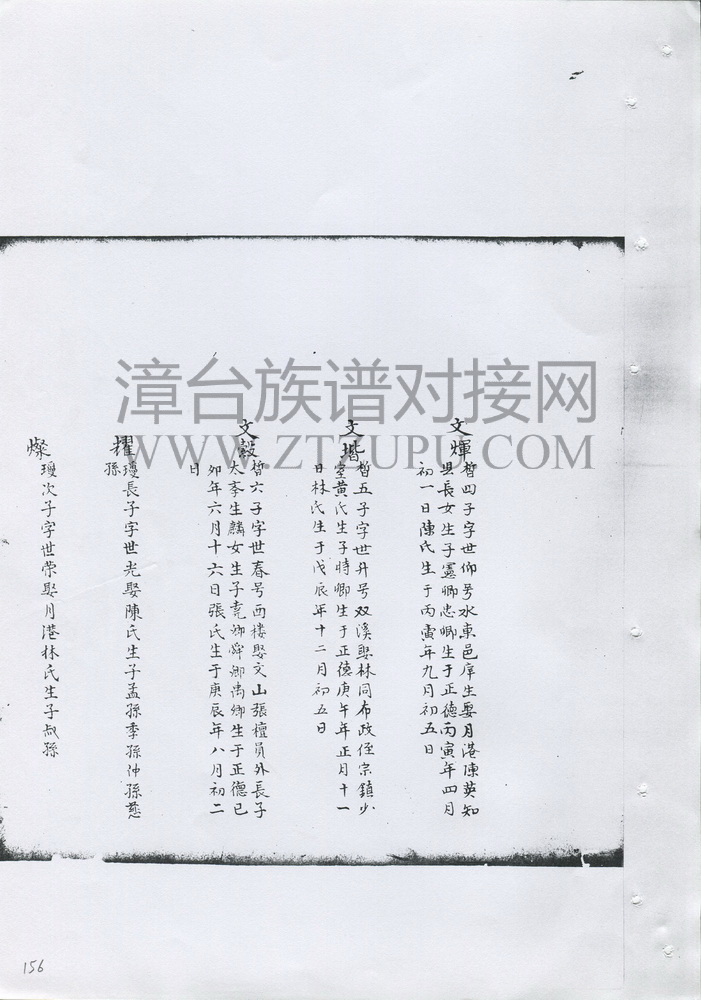 文輝
晳四子字世仰号水東邑庠生娶月港陳英知
县長女生子憲卿忠卿生于正德丙寅年四月
初一日陳氏生于丙寅年九月初五日
文堦
晳五子字世升号双溪娶林同布政侄宗鎮少
室黄氏生子時卿生于正德庚午年正月十一
日林氏生于戊辰年十二月初五日
文毅
晳六子字世春号西楼娶文山張檀員外長子
太李生麟女生子堯卿舜卿禹卿生于正德已
卯年六月十六日張氏生于庚辰年八月初二
日
耀
瓊長子字世光娶陳氏生子孟孫季孫仲孫慈
孫
燦
瓊次子字世荣娶月港林氏生子叔孫
漳台族谱对接网
WWW.ZTZUPU.COM
156